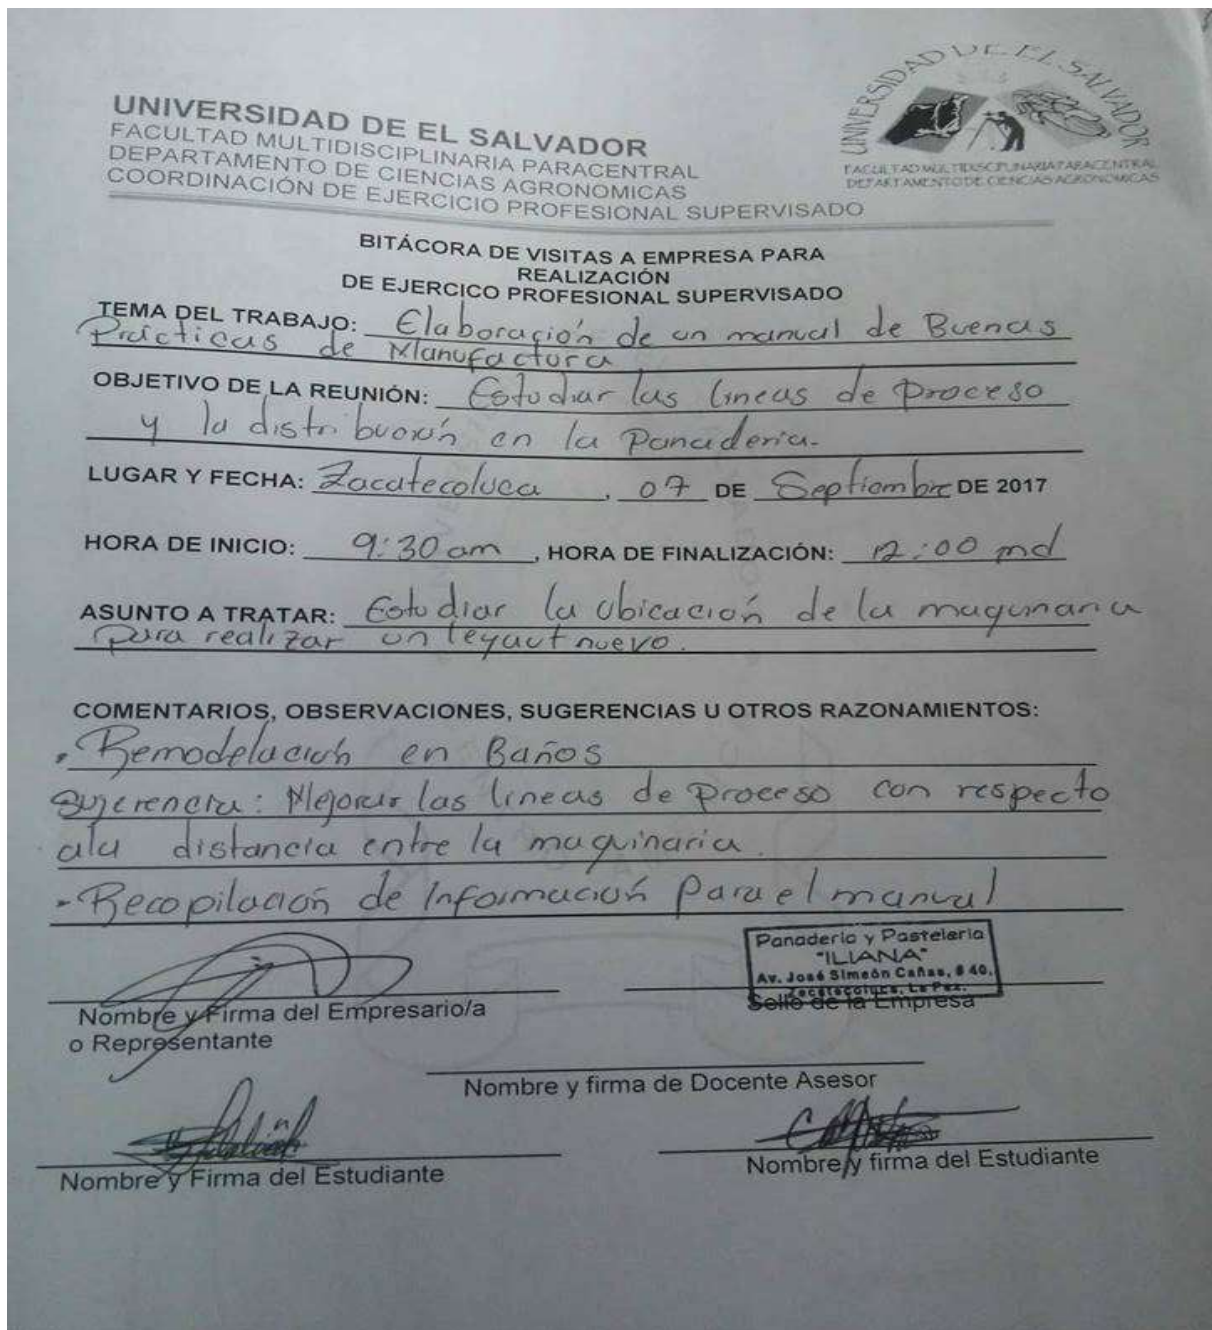 UNIVERSIDAD DE EL SALVADOR
FACULTAD MULTIDISCIPLINARIA PARACENTRAL
DEPARTAMENTO DE CIENCIAS AGRONOMICAS
COORDINACIÓN DE EJERCICIO PROFESIONAL SUPERVISADO
UNIVERSIDAD DE EL SALVADOR
FACULTAD MULTIDISCIPLINARIA PARACENTRAL
DEPARTAMENTO DE CIENCIAS AGRONOMICAS
BITÁCORA DE VISITAS A EMPRESA PARA
REALIZACIÓN
DE EJERCICO PROFESIONAL SUPERVISADO
TEMA DEL TRABAJO: Elaboración de un manual de Buenas
Prácticas de Manufactura
OBJETIVO DE LA REUNIÓN: Estudiar las lineas de proceso
y la distribución en la Panaderia.
LUGAR Y FECHA: Zacatecoluca, 07 DE Septiembre DE 2017
HORA DE INICIO: 9:30 am, HORA DE FINALIZACIÓN: 12:00 md
ASUNTO A TRATAR: Estudiar la ubicación de la maquinaria
para realizar un leyaut nuevo.
COMENTARIOS, OBSERVACIONES, SUGERENCIAS U OTROS RAZONAMIENTOS:
. Remodelación en Baños
Sugerencia: Mejorar las lineas de Proceso con respecto
ala distancia entre la maquinaria.
- Recopilación de Información Para el manual
Panadería y Pastelería
"ILIANA"
Av. José Simeón Cañas, # 40.
Zacatecoluca, La Paz.
Nombre y Firma del Empresario/a
o Representante
Sello de la Empresa
Nombre y firma de Docente Asesor
Nombre y Firma del Estudiante
Nombre y firma del Estudiante